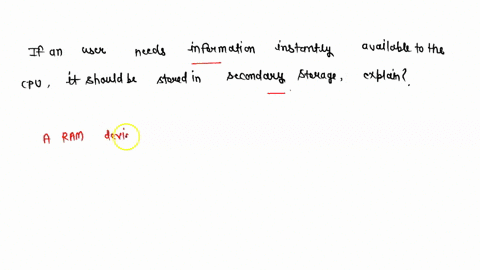 If an user needs information instantly available to the
CPU, it should be stored in secondary storage, explain?
A RAM devic